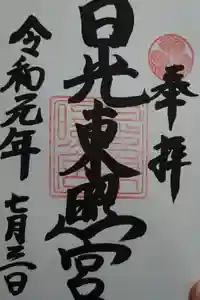 奉拝
日光東照宮
令和元年
七月三一日